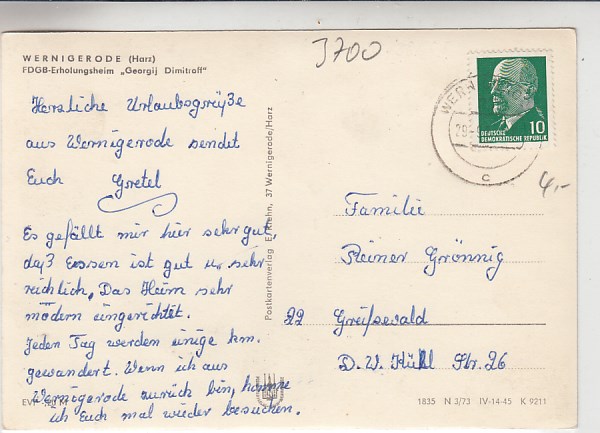 3700
WERNIGERODE (Harz)
FDGB-Erholungsheim „Georgij Dimitroff"
Herzliche Urlaubsgrüße
aus Wernigerode sendet
Euch Gretel
Es gefällt mir hier sehr gut,
daß Essen ist gut u. sehr
reichlich. Das Heim sehr
modern eingerichtet.
Jeden Tag werden einige km.
gewandert. Wenn ich aus
Wernigerode zurück bin, komme
ich Euch mal wieder besuchen.
EVP
M
Postkartenverlag E. Riehn, 37 Wernigerode/Harz
WERN
29
c
10
DEUTSCHE
DEMOKRATISCHE REPUBLIK
4,-
Familie
Reiner Grönnig
22 Greifswald
D. W. Kühl Str. 26
1835 N 3/73 IV-14-45 K 9211